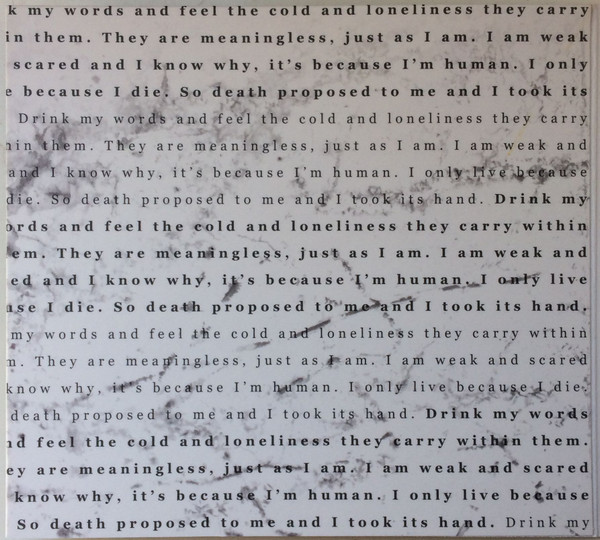 k my words and feel the cold and loneliness they carry
in them. They are meaningless, just as I am. I am weak
scared and I know why, it's because I'm human. I only
e because I die. So death proposed to me and I took its
Drink my words and feel the cold and loneliness they carry
in them. They are meaningless, just as I am. I am weak and
and I know why, it's because I'm human. I only live because
die. So death proposed to me and I took its hand. Drink my
ords and feel the cold and loneliness they carry within
em. They are meaningless, just as I am. I am weak and
ed and I know why, it's because I'm human. I only live
use I die. So death proposed to me and I took its hand.
my words and feel the cold and loneliness they carry within
m. They are meaningless, just as I am. I am weak and scared
know why, it's because I'm human. I only live because I die.
death proposed to me and I took its hand. Drink my words
nd feel the cold and loneliness they carry within them.
ey are meaningless, just as I am. I am weak and scared
know why, it's because I'm human. I only live because
So death proposed to me and I took its hand. Drink my